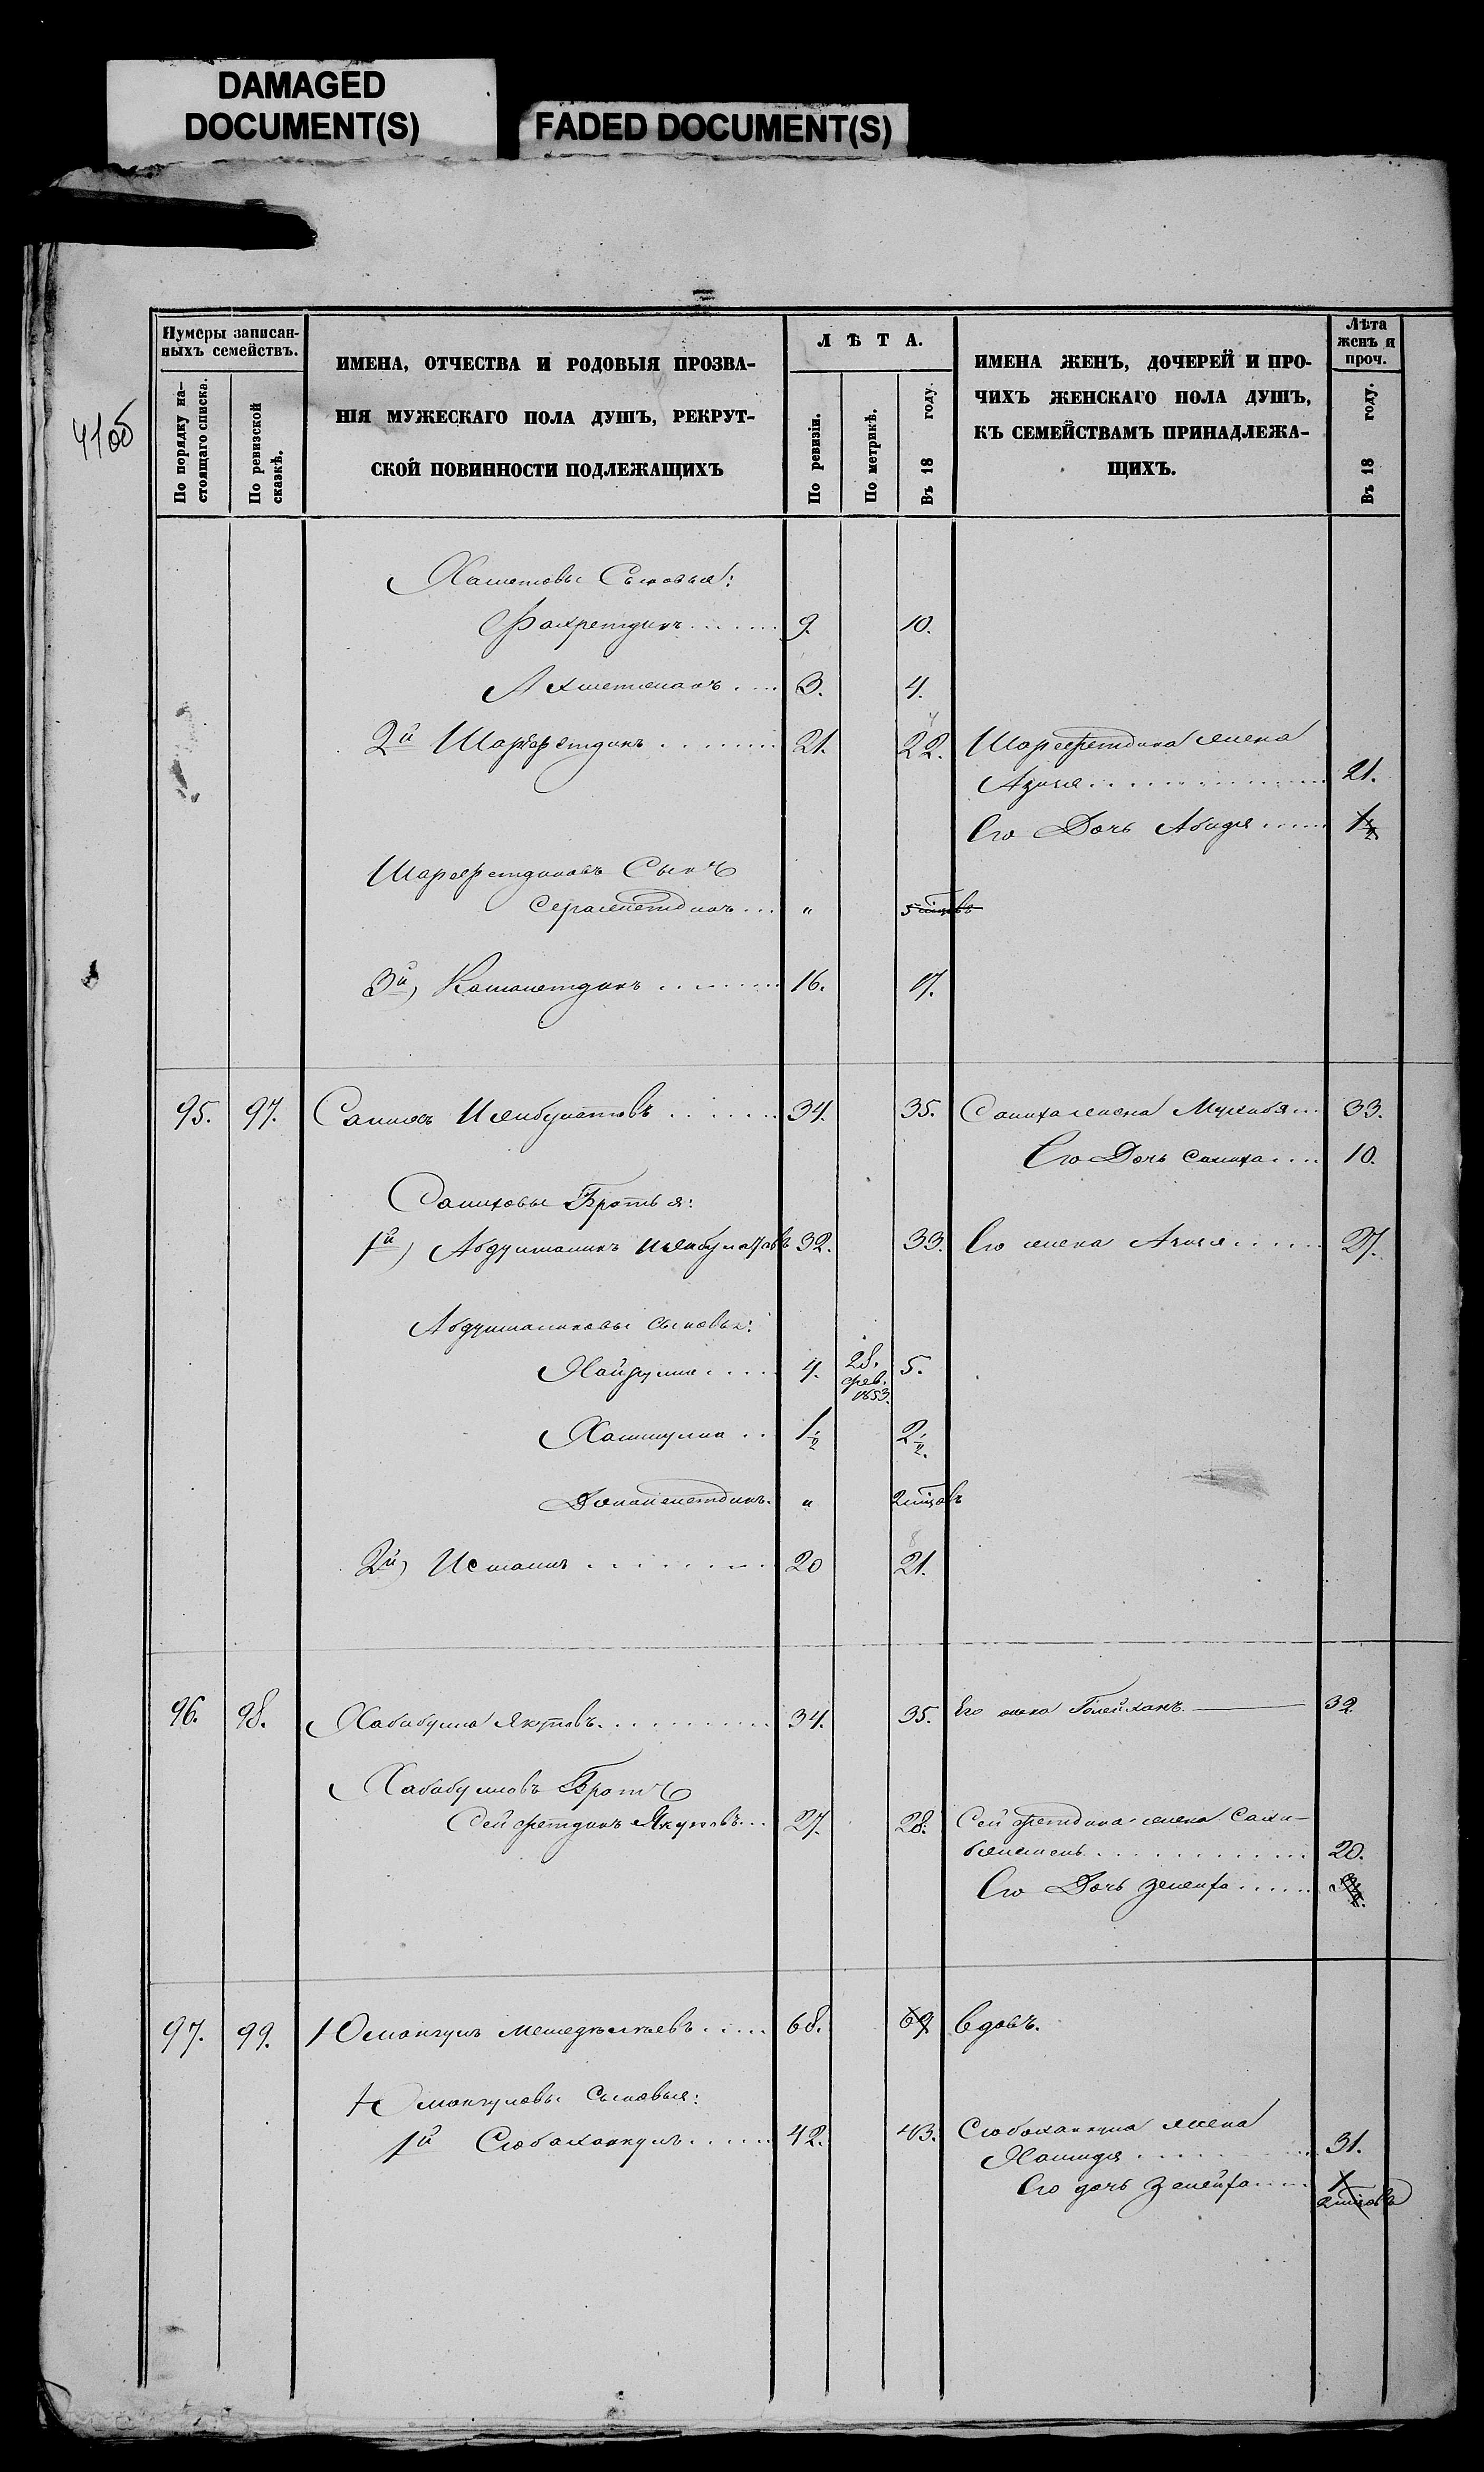 DAMAGED
DOCUMENT(S)
FADED DOCUMENT(S)
41об
Нумеры записан-
ныхъ семействъ.
По порядку на-
стоящаго списка.
По ревизской
сказкѣ.
ИМЕНА, ОТЧЕСТВА И РОДОВЫЯ ПРОЗВА-
НІЯ МУЖЕСКАГО ПОЛА ДУШЪ, РЕКРУТ-
СКОЙ ПОВИННОСТИ ПОДЛЕЖАЩИХЪ
ЛѢТА.
По ревизіи.
По метрикѣ.
Въ 18 году.
ИМЕНА ЖЕНЪ, ДОЧЕРЕЙ И ПРО-
ЧИХЪ ЖЕНСКАГО ПОЛА ДУШЪ,
КЪ СЕМЕЙСТВАМЪ ПРИНАДЛЕЖА-
ЩИХЪ.
Лѣта
женъ и
проч.
Въ 18 году.
Сыновья:
Фахретдинъ 9. 10.
Ахметжанъ 3. 4.
2й Шарафетдинъ 21. 22. Шарафетдина жена
Азиля 21.
Его Дочь Абидя 1½
Шарафетдиновъ Сынъ
" 5 мцовъ
3й) Камалетдинъ 16. 17.
95. 97. Салихъ Исянбулатовъ 34. 35. Салиха жена 33.
Его Дочь Салиха 10.
Салиховы Братья:
1й) Абдулманнъ Исянбулатовъ 32. 33. Его жена 27.
сыновья:
Хайрулла 4. 28. фев. 1853. 5.
1½ 2½
" 2 мцовъ
2й) Исмаилъ 20 21.
96. 98. Хабибулла Якуповъ 34. 35. Его жена 32
Хабибулловъ Братъ
Сейфетдинъ Якуповъ 27. 28. Сейфетдина жена
20.
Его Дочь Зелейха
97. 99. Юмангулъ 68. 69 вдовъ.
Юмангуловы сыновья:
1й 42. 43. жена
Хамидя 31.
Его дочь Зелейха 1
2 мцовъ